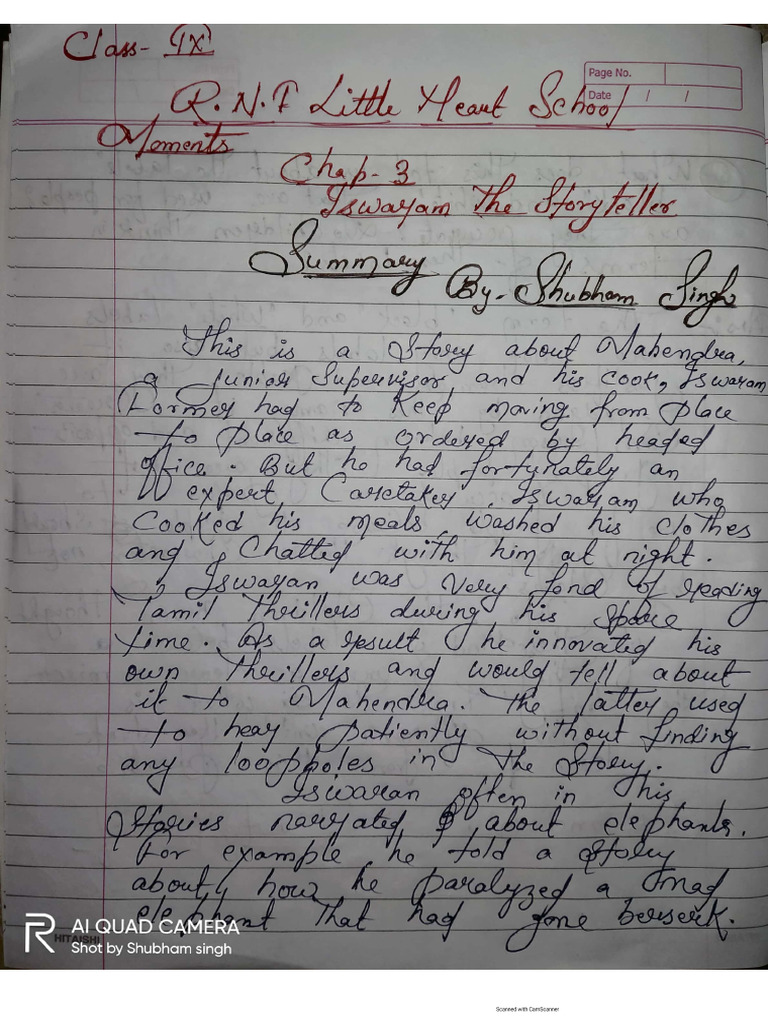 Class- IX
Page No.
Date / /
R.N.F Little Heart School
Moments
Chap-3
Iswaran The Storyteller
Summary
By- Shubham Singh
This is a Story about Mahendra,
a junior Supervisor and his cook, Iswaran
Former had to keep moving from place
to place as ordered by headed
office. But he had fortunately an
expert Caretaker Iswaran who
cooked his meals, washed his clothes
and chatted with him at night.
Iswaran was very fond of reading
Tamil thrillers during his spare
time. As a result he innovated his
own thrillers and would tell about
it to Mahendra. The latter used
to hear patiently without finding
any loopholes in the story.
Iswaran often in his
Stories narrated about elephants.
For example he told a story
about how he paralyzed a mad
elephant that had gone berserk.
HITAISHI
AI QUAD CAMERA
Shot by Shubham singh
Scanned with CamScanner